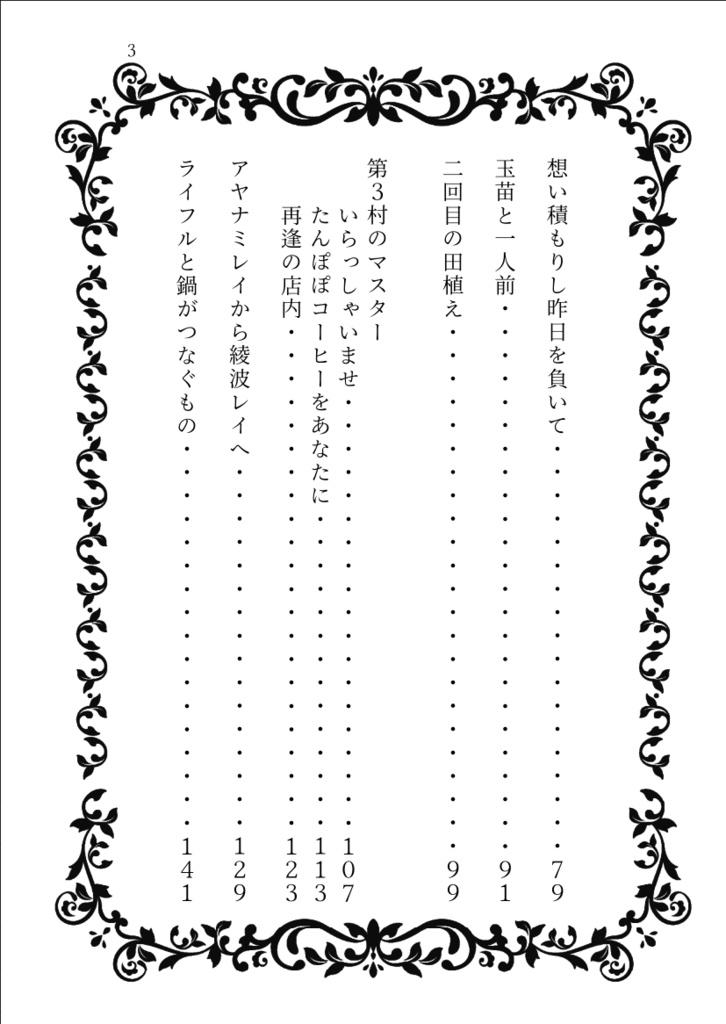 3
想い積もりし昨日を負いて・・・・・・・・・・・・・・・・・・79
玉苗と一人前・・・・・・・・・・・・・・・・・・・・・・・・91
二回目の田植え・・・・・・・・・・・・・・・・・・・・・・・99
第3村のマスター
いらっしゃいませ・・・・・・・・・・・・・・・・・・・107
たんぽぽコーヒーをあなたに・・・・・・・・・・・・・・113
再逢の店内・・・・・・・・・・・・・・・・・・・・・・123
アヤナミレイから綾波レイへ・・・・・・・・・・・・・・・・129
ライフルと鍋がつなぐもの・・・・・・・・・・・・・・・・・141